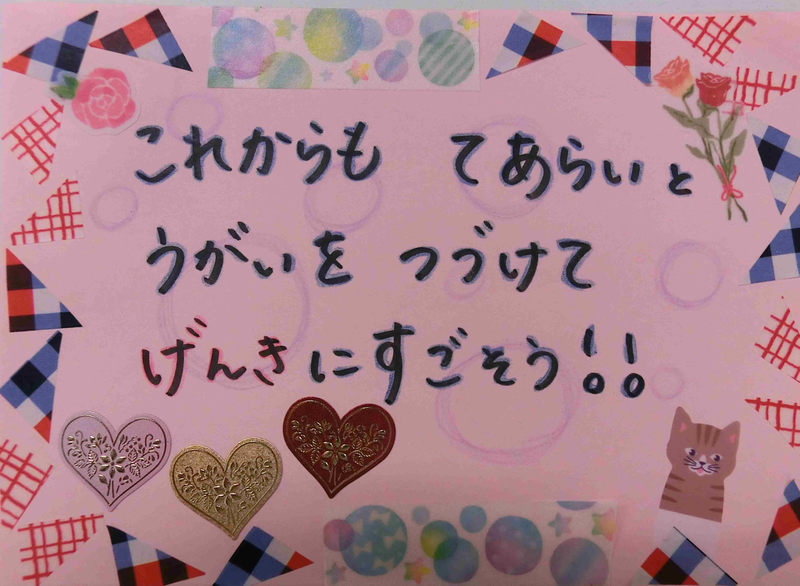 これからも てあらいと
うがいを つづけて
げんきにすごそう!!